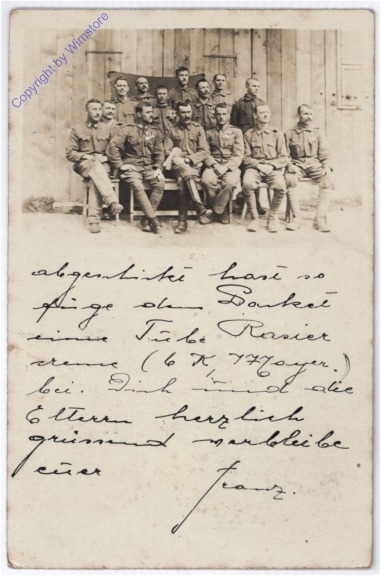 Copyright by Wimstore
abgeschickt hast so
füge dem Packet
eine Tube Rasier
creme (6 K, Mayer.)
bei. Dich und die
Elterrn herzlich
grüssend verbleibe
euer
Franz.